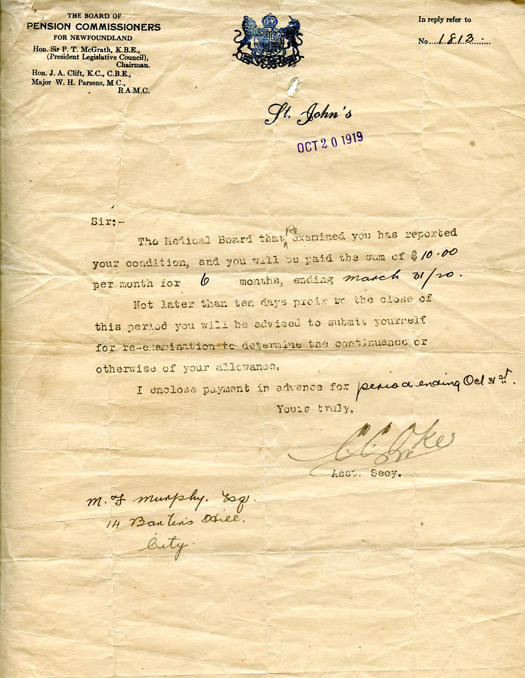 THE BOARD OF
PENSION COMMISSIONERS
FOR NEWFOUNDLAND
Hon. Sir P. T. McGrath, K.B.E.,
(President Legislative Council),
Chairman.
Hon. J. A. Clift, K.C., C.B.E.,
Major W. H. Parsons, M.C.,
R.A.M.C.
In reply refer to
No. 1813
St. John's
OCT 20 1919
Sir:-
The Medical Board that examined you has reported
your condition, and you will be paid the sum of $10.00
per month for 6 months, ending March 31/20.
Not later than ten days proir to the close of
this period you will be advised to submit yourself
for re-examination to determine the continuance or
otherwise of your allowance.
I enclose payment in advance for period ending Oct 31st.
Yours truly,
Asst. Secy.
M. J Murphy, Esq.
14 Hill,
City